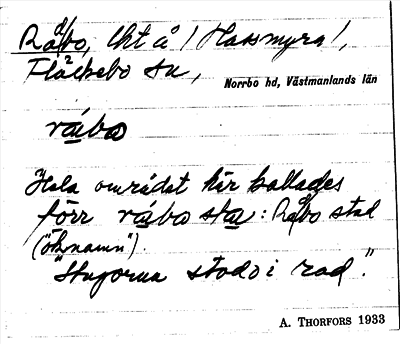 Råbo, lht å / Hassmyra /,
Fläckebo sn,
Norrbo hd, Västmanlands län
råibo
Hela området här kallades
förr råibo sta: Råbo stad
("öknamn").
"Stugorna stodo i rad."
A. THORFORS 1933